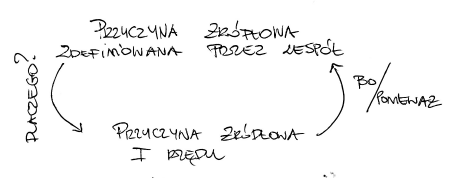 PRZYCZYNA ŹRÓDŁOWA
ZDEFINIOWANA PRZEZ ZESPÓŁ
DLACZEGO?
BO/PONIEWAŻ
PRZYCZYNA ŹRÓDŁOWA
I RZĘDU